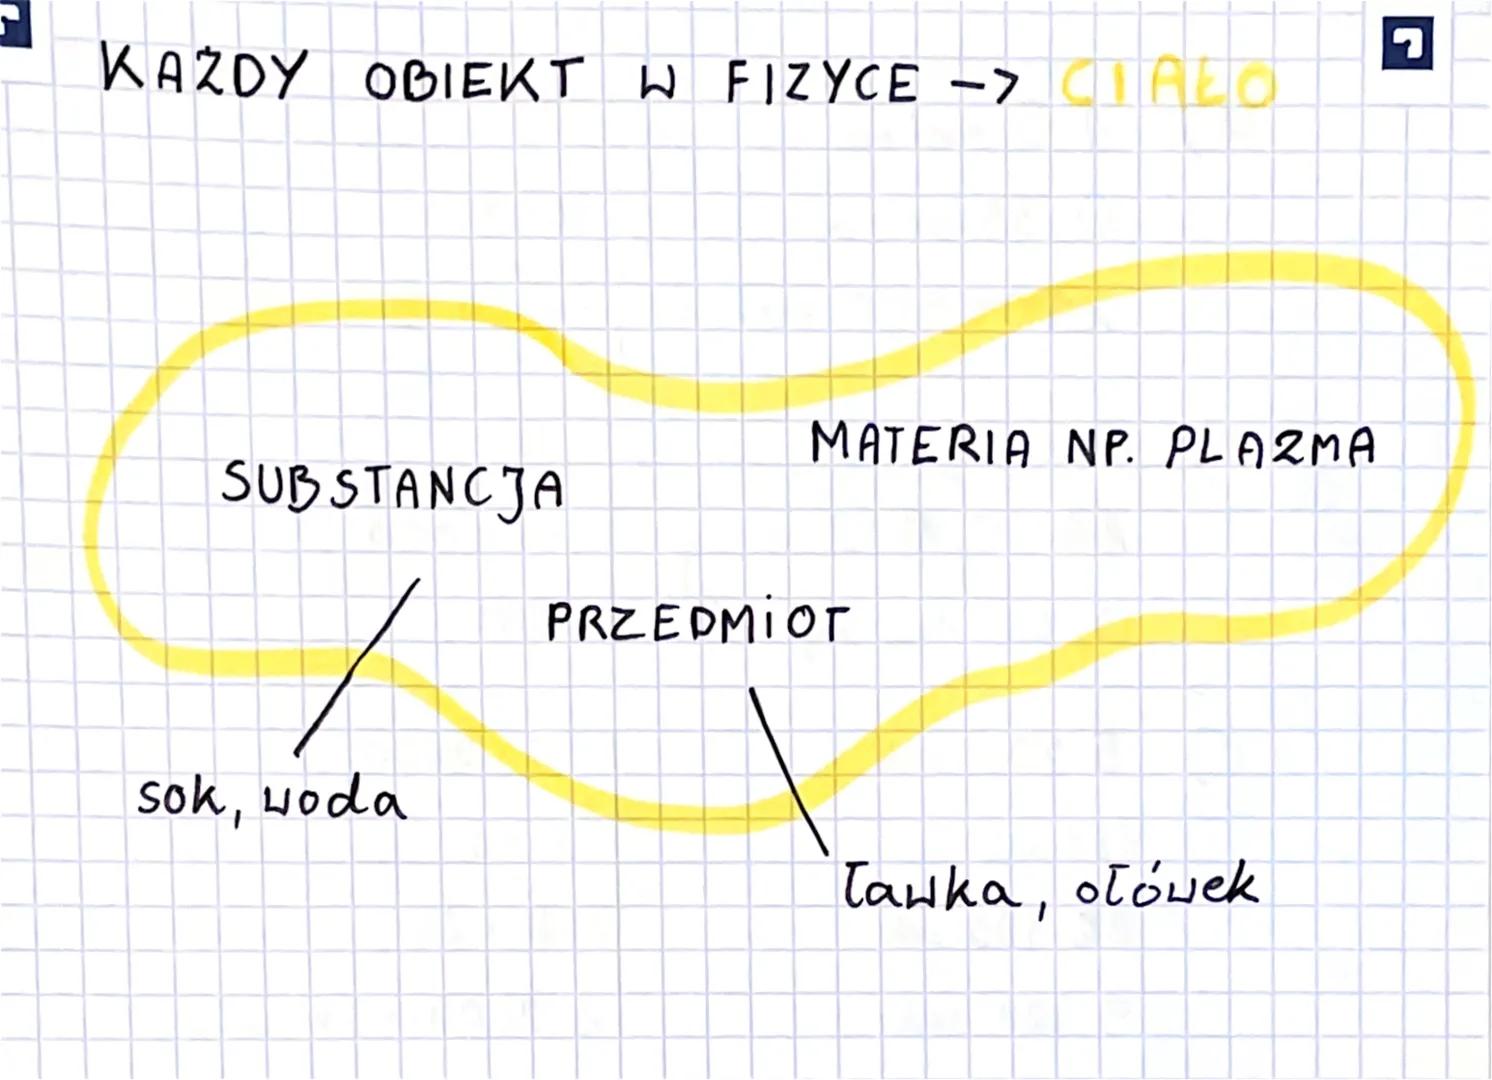 KAŻDY OBIEKT W FIZYCE -> CIAŁO
MATERIA NP. PLAZMA
SUBSTANCJA
PRZEDMIOT
sok, woda
ławka, ołówek